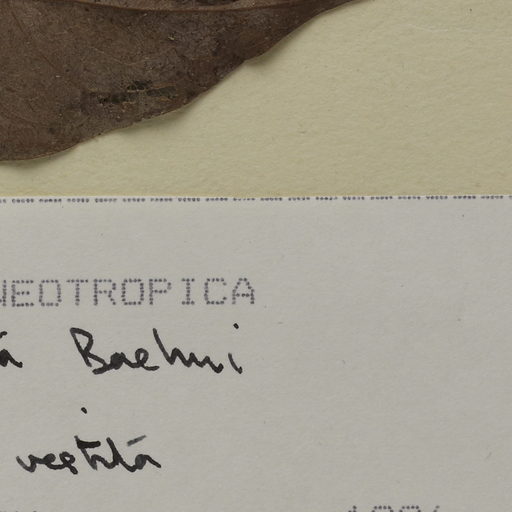 NEOTROPICA
a Baehni
vestita